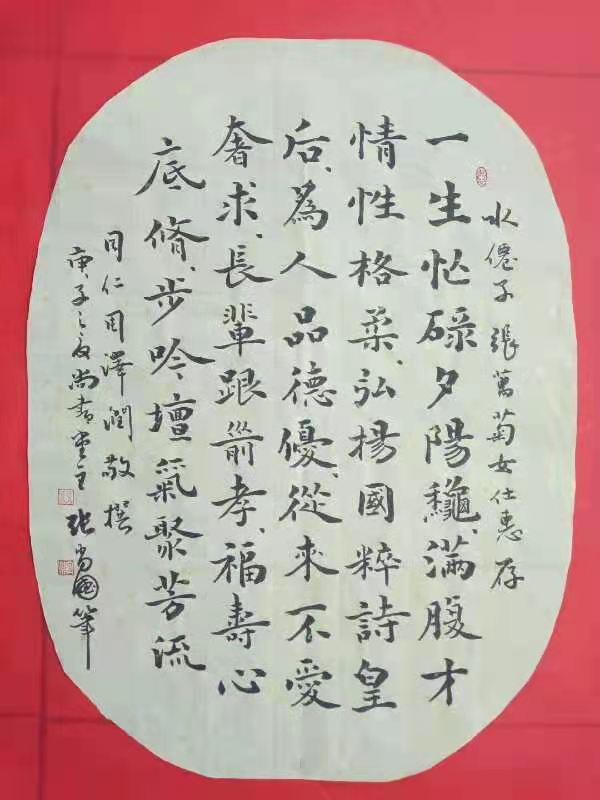 水僊子 張萬菊女仕惠存
一生忙碌夕陽龝、滿腹才
情性格柔、弘楊國粹詩皇
后、為人品德優、從來不愛
奢求、長輩跟前孝、福壽心
底脩、步吟壇氣聚芳流
同仁周澤潤敬撰
庚子之夏尚書堂主 張尚國筆